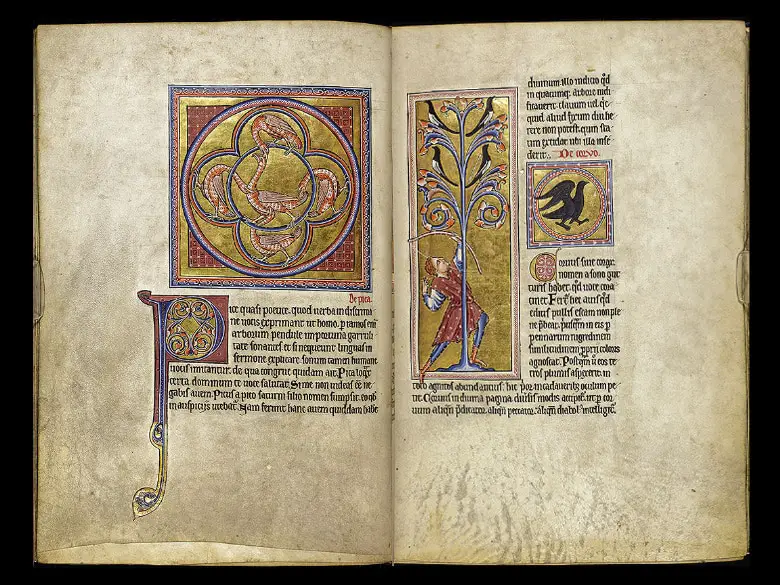 De pica.
Pice quasi poetice, quod verba in discrimi
ne vocis exprimant ut homo. P ramos eni
arborum pendule importuna garruli
tate sonantes, et si nequeunt linguas in
sermone explicare, sonum tamen humane
vocis imitantur. De qua congrue quidam ait. Pica loqx
certa dominum te voce saluto. Si me non videas esse ne
gabis avem. Picus a pico saturni filio nomen sumpsit, eo qd
in auspiciis utebatur. Nam ferunt hanc avem quiddam habe
divinum, illo indicio qd
in quacumq; arbore nidi
ficaverit, clavum vel qic
quid aliud fixum diu he
rere non potest, quin sta
tim excidat ubi illa inse
derit. De corvo.
Corvus sive corax
nomen a sono gut
turis habet, qd voce cora
cinet. Fert hec avis qd
editis pullis escam non ple
ne pbeat, priusqm in eis p
pennarum nigredinem
similitudinem pprii coloris
agnoscat. Postqm u eos te
tros plumis aspexerit, in
toto agnitos abundantius cibat. hic prior in cadaverib; oculum pe
tit. Corvus in divina pagina diversis modis accipitur, ut p cor
vum aliqn pdicator, aliqn peccator, aliqn diabol intelligitur.